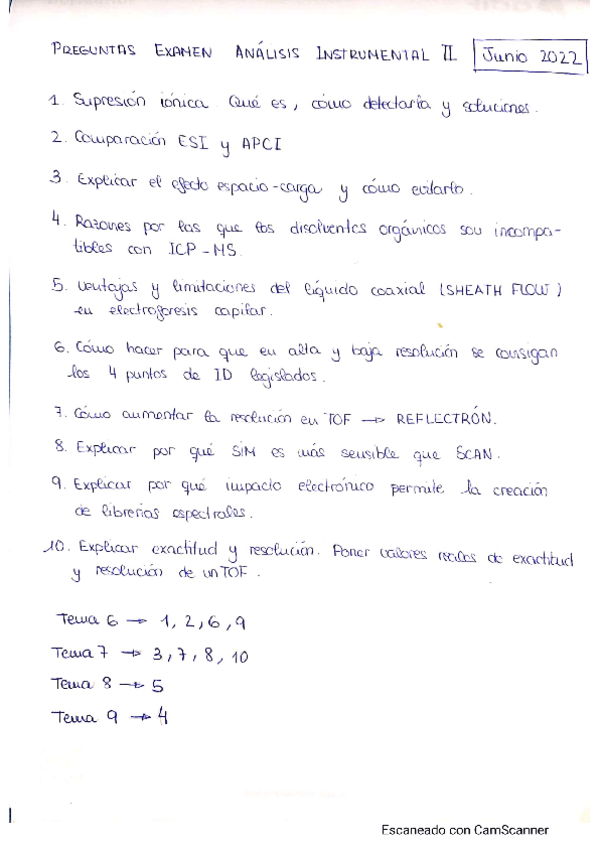 PREGUNTAS EXAMEN ANÁLISIS INSTRUMENTAL II Junio 2022
1. Supresión iónica. Qué es, cómo detectarla y soluciones.
2. Comparación ESI y APCI
3. Explicar el efecto espacio-carga y cómo evitarlo.
4. Razones por las que los disolventes orgánicos son incompa-
tibles con ICP-MS.
5. Ventajas y limitaciones del líquido coaxial (SHEATH FLOW)
en electroforesis capilar.
6. Cómo hacer para que en alta y baja resolución se consigan
los 4 puntos de ID legislados.
7. Cómo aumentar la resolución en TOF → REFLECTRÓN.
8. Explicar por qué SIM es más sensible que SCAN.
9. Explicar por qué impacto electrónico permite la creación
de librerías espectrales.
10. Explicar exactitud y resolución. Poner valores reales de exactitud
y resolución de un TOF.
Tema 6 → 1, 2, 6, 9
Tema 7 → 3, 7, 8, 10
Tema 8 → 5
Tema 9 → 4
Escaneado con CamScanner